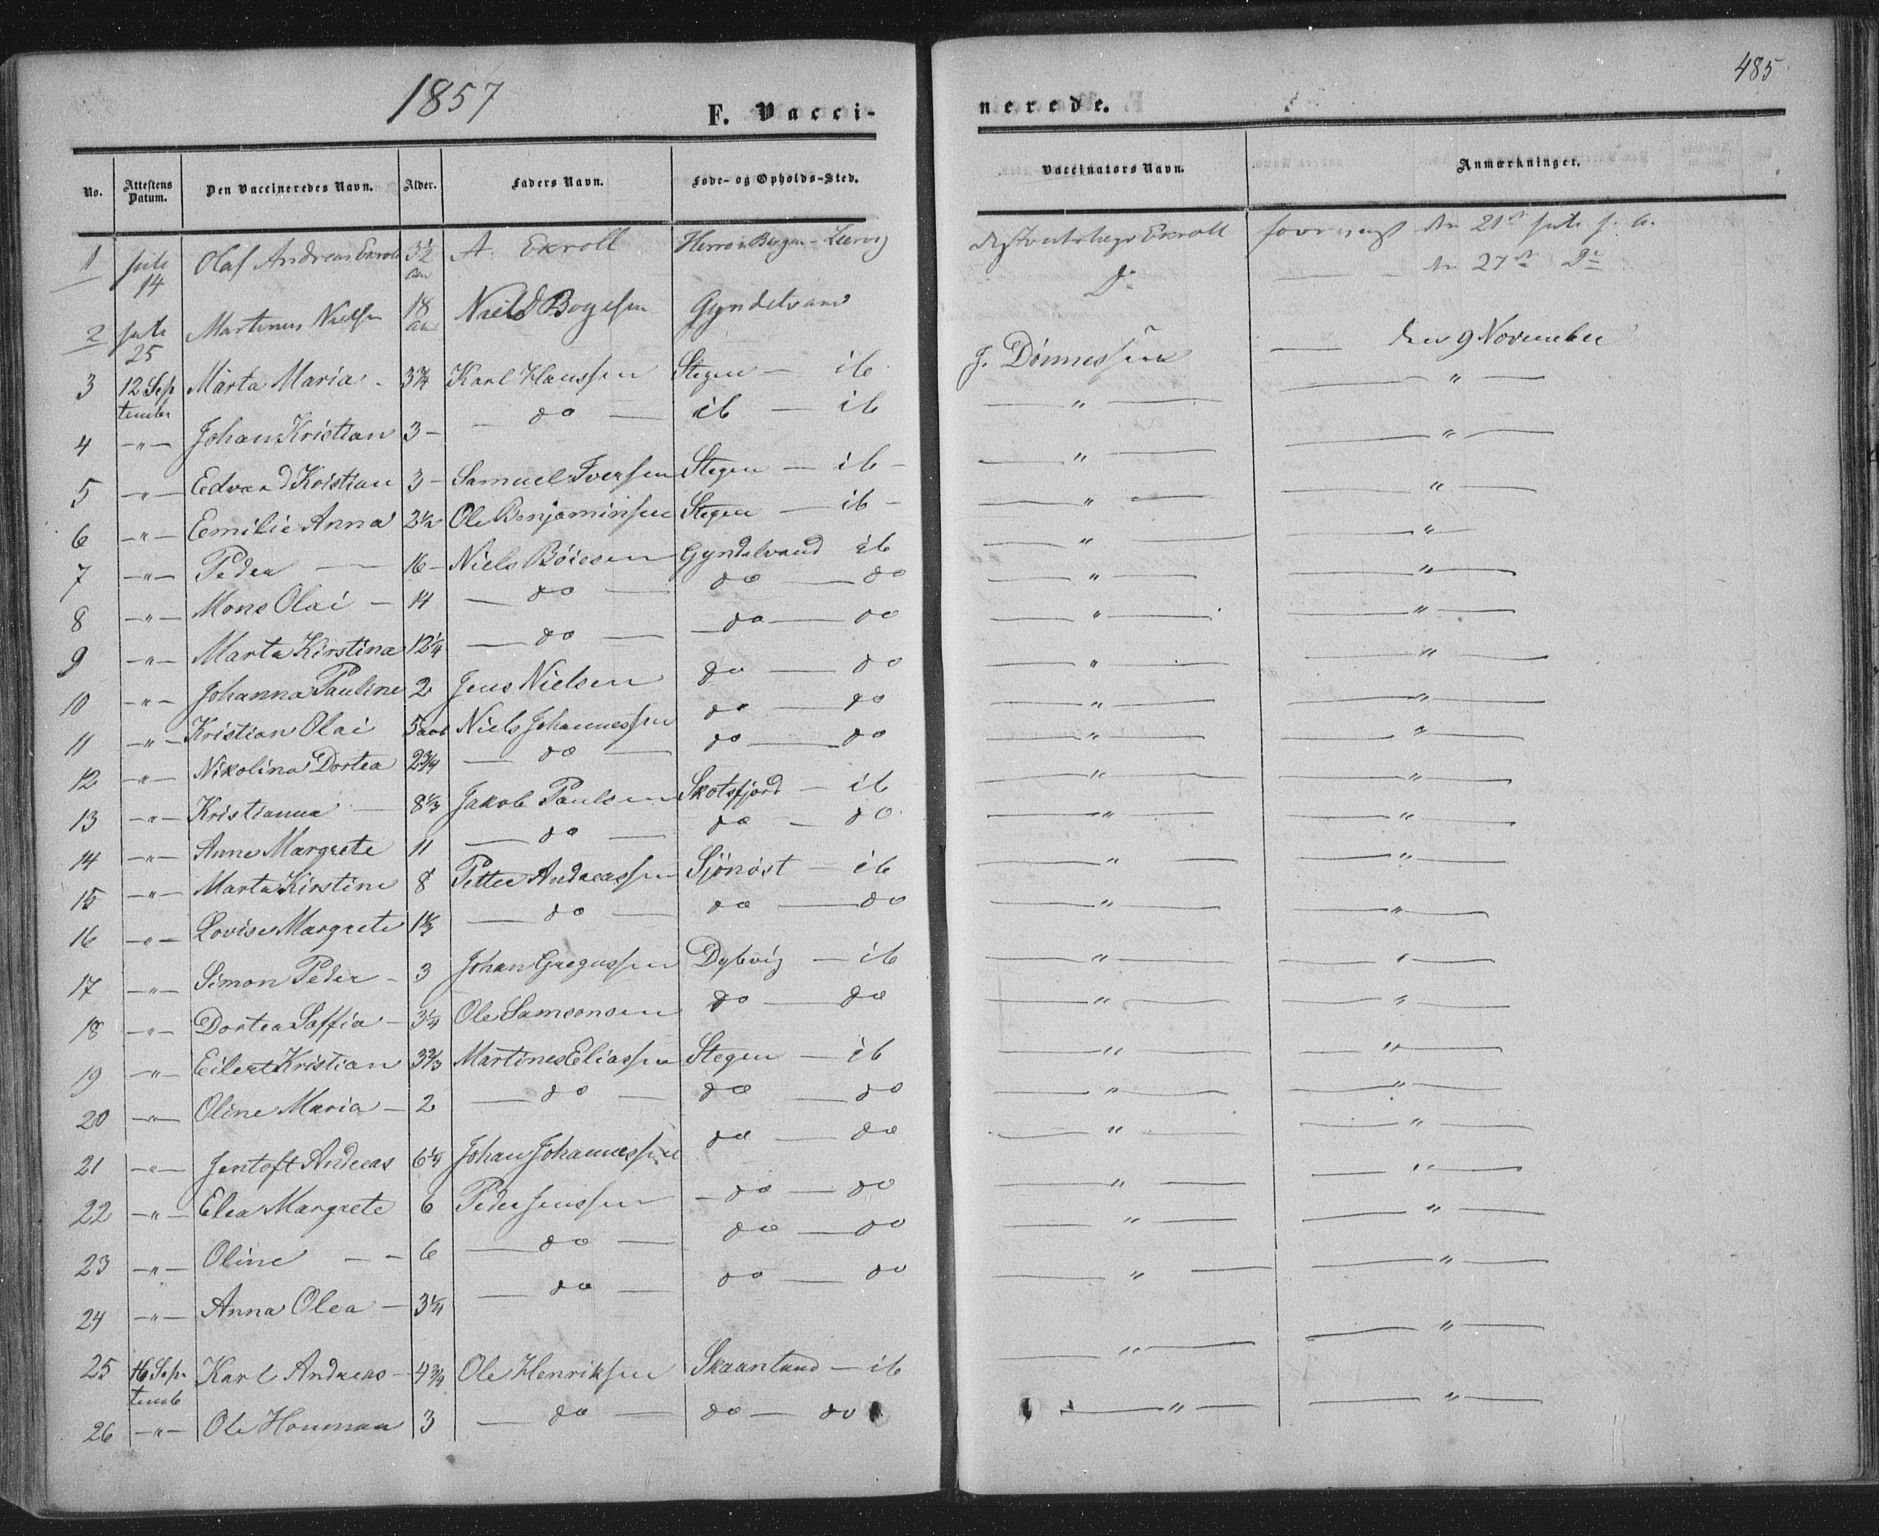 1857
485
F. Vacci-
nerede.
No. Attestens Datum. Den Vaccineredes Navn. Alder. Faders Navn. Føde- og Opholds-Sted. Vaccinators Navn. Anmærkninger.
1 Juli 14 Olaf Andreas Exroll 3½ aar A. Exroll den 21de Juli
2 Juli 25 Martinus Nielsen 18 aar Niels Boyesen Gyndelvand Do den 27de Do
3 12 September Märta Maria - 3¾ Karl Hanssen Stegen - ib J. Dönnessen — den 9 November
4 -"- Johan Kristian 3 - - do - ib - ib — " — — " —
5 -"- Edvard Kristian 3 - Samuel Iversen Stegen - ib - — " — — " —
6 -"- Emilie Anna 2½ Ole Benjaminsen Stegen - ib - — " — — " —
7 -"- Peder - 16 - Niels Böiesen Gyndelvand ib — " — — " —
8 -"- Mons Olai - 14 - do - do - do — " — — " —
9 -"- Marta Kirstina 12¼ - do - - do - do — " — — " —
10 -"- Johanna Pauline 2 Jens Nielsen do - do — " — — " —
11 -"- Kristian Olai 5 aar Niels Johannessen do - do — " — — " —
12 -"- Nikolina Dortea 2¾ - do - do - do — " — — " —
13 -"- Kristianna - 8⅓ Jakob Paulsen Skotsfjord - ib — " — — " —
14 -"- Anne Margrete 11 - do - do - do — " — — " —
15 -"- Marta Kirstine 8 Petter Andreassen Sjönöst - ib — " — — " —
16 -"- Lovise Margrete 1⅓ - do - do - do — " — — " —
17 -"- Simon Peder - 3 Johan Gregussen Dybvig - ib — " — — " —
18 -"- Dortea Saffia - 3¼ Ole Samsonsen do - do — " — — " —
19 -"- Eilert Kristian 3⅔ Martines Eliassen Stegen - ib — " — — " —
20 -"- Oline Maria - 2 - do - do - do — " — — " —
21 -"- Jentoft Andreas 6¼ Johan Johannessen do - do — " — — " —
22 -"- Elea Margrete 6 Peder Jenssen - do - do — " — — " —
23 -"- Oline - - 6 - do - do - do — " — — " —
24 -"- Anna Olea - 3¼ - do - do - do — " — — " —
25 16 September Karl Andreas - 4¾ Ole Henriksen Skaanland - ib — " — — " —
26 -"- Ole 3 - do - do - do — " — — " —